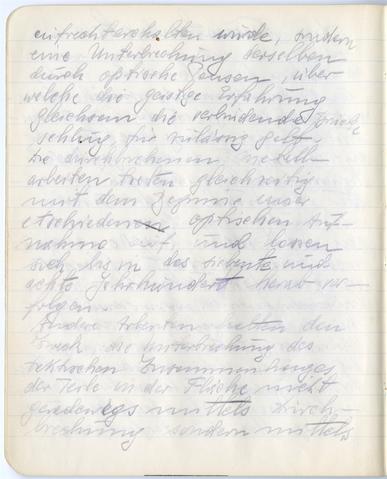 aufrechterhalten würde, sondern
eine Unterbrechung derselben
durch optische Zensen, über
welche die geistige Erfahrung
gleichsam die verbindende Brücke
schlug, für zulässig hält.
Die durchbrochenen Metall-
arbeiten treten gleichzeitig
mit dem Beginne einer
entschiedenen optischen Auf-
nahme auf, und lassen
sich bis in das siebente und
achte Jahrhundert herab ver-
folgen.
Andere Arbeiten den
die Unterbrechung des
taktischen Zusammenhanges
der Teile in der Fläche nicht
geradewegs mittels Durch-
brechung sondern mittels